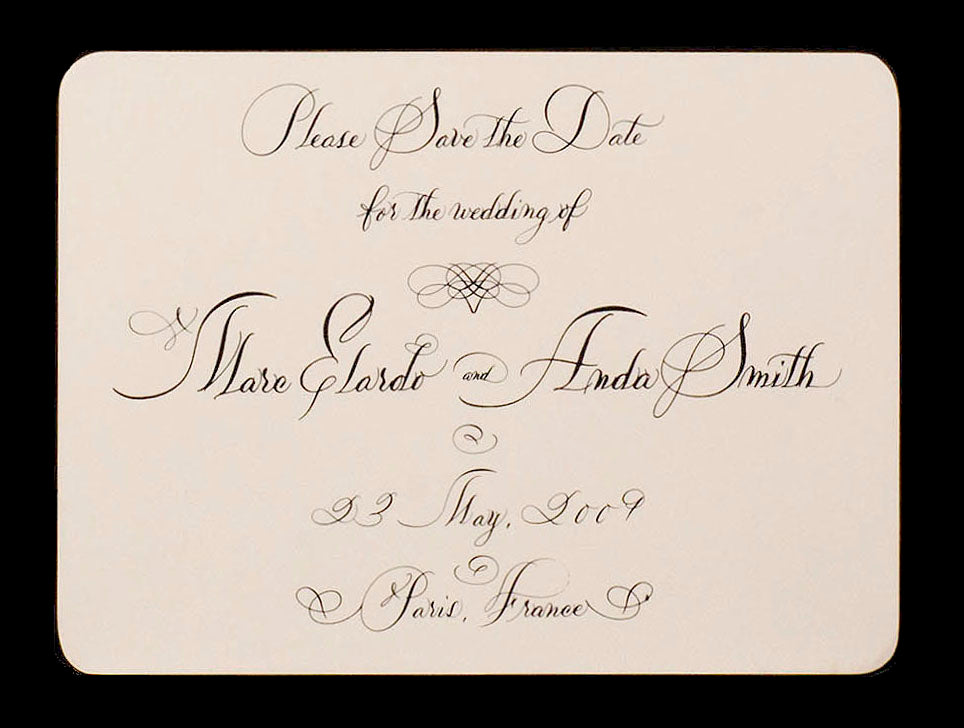 Please Save the Date
for the wedding of
Marc Elardo and Anda Smith
23 May, 2009
Paris, France